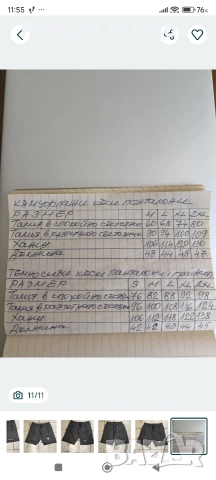 11:55
76%
КАМУФЛАЖНИ КЪСИ ПАНТАЛОНИ
РАЗМЕР M L XL 2XL
Талия в спокойно състояние 60 68 74 80
Талия в разтегнато състояние 90 94 100 109
Ханш 106 114 120 130
Дължина 43 44 45 47
ТЕМНОСИВИ КЪСИ ПАНТАЛОНИ
РАЗМЕР S M L XL 2XL
Талия в спокойно 76 82 88 92 98
Талия в разтегнато 96 100 108 116 124
Ханш 106 112 118 122 128
Дължина 42 42 43 44 45
11/11
BAZAR